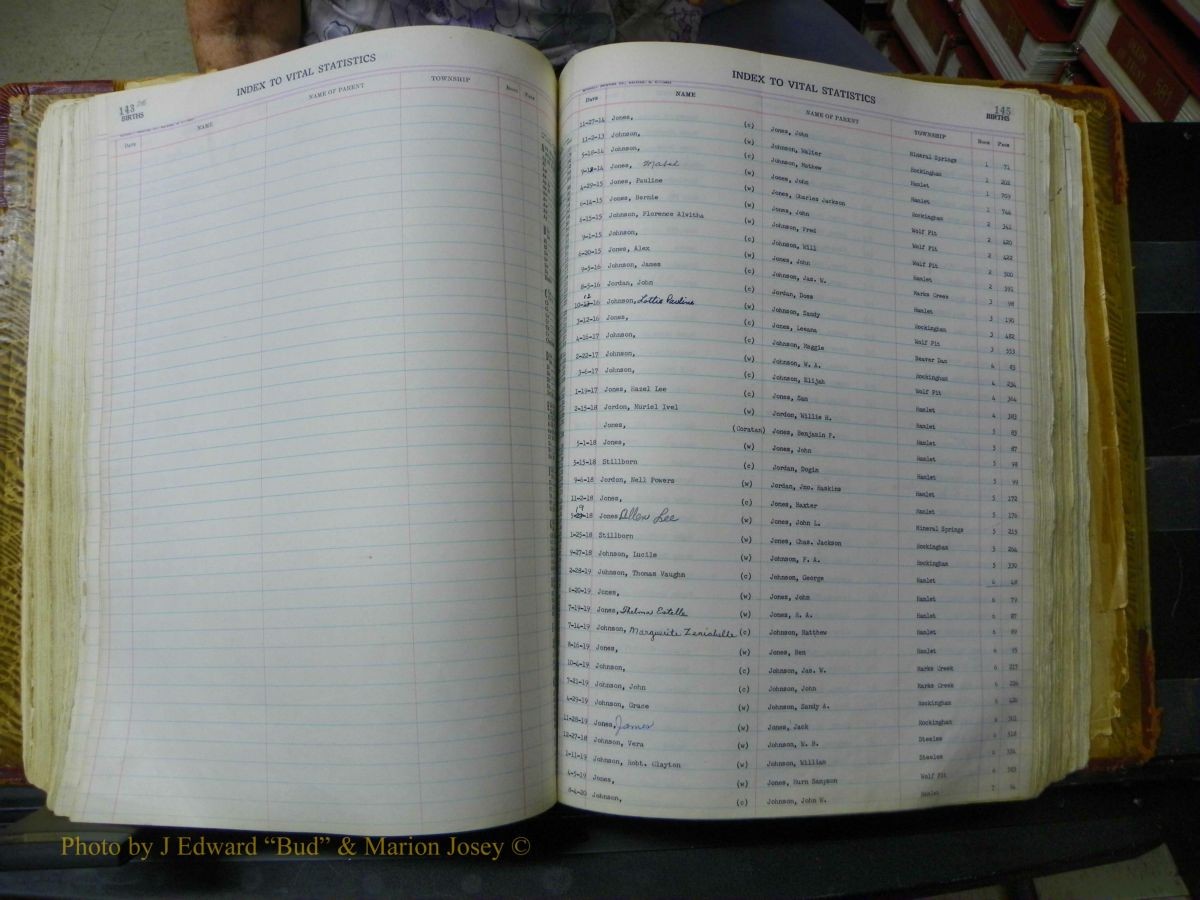 143
BIRTHS
INDEX TO VITAL STATISTICS
Date NAME NAME OF PARENT TOWNSHIP Book Page
INDEX TO VITAL STATISTICS
145
BIRTHS
Date NAME NAME OF PARENT TOWNSHIP Book Page
11-27-14 Jones, (c) Jones, John Mineral Springs 1 71
11-2-13 Johnson, (w) Johnson, Walter Rockingham 1 202
5-18-14 Johnson, (c) Johnson, Mathew Hamlet 1 709
9-12-14 Jones, Mabel (w) Jones, John Hamlet 1 744
4-29-15 Jones, Pauline (w) Jones, Charles Jackson Rockingham 2 342
6-14-15 Jones, Bernie (w) Jones, John Wolf Pit 2 420
6-15-15 Johnson, Florence Alwitha (w) Johnson, Fred Wolf Pit 2 422
9-1-15 Johnson, (c) Johnson, Will Wolf Pit 2 500
6-20-15 Jones, Alex (w) Jones, John 2 591
9-5-16 Johnson, James (c) Johnson, Jas. W. Marks Creek 3 98
8-5-16 Jordan, John (c) Jordan, Doss Hamlet 3 190
10-12-16 Johnson, Lottie Pauline (w) Johnson, Sandy Rockingham 3 482
3-12-16 Jones, (c) Jones, Leeana Wolf Pit 3 553
4-16-17 Johnson, (c) Johnson, Maggie Beaver Dam 4 63
2-22-17 Johnson, (w) Johnson, W. A. Rockingham 4 234
3-6-17 Johnson, (c) Johnson, Elijah Wolf Pit 4 364
1-19-17 Jones, Hazel Lee (c) Jones, Sam Hamlet 4 383
2-15-18 Jordon, Muriel Ivel (w) Jordon, Willie H. Hamlet 5 83
Jones, (Coratan) Jones, Benjamin F. Hamlet 5 87
5-1-18 Jones, (w) Jones, John Hamlet 5 98
5-15-18 Stillborn (c) Jordan, Dogin Hamlet 5 99
9-6-18 Jordon, Nell Powers (w) Jordan, Jno. Haskins Hamlet 5 172
11-2-18 Jones, (c) Jones, Baxter Hamlet 5 176
5-19-18 Jones, Allen Lee (w) Jones, John L. Mineral Springs 5 215
1-25-18 Stillborn (w) Jones, Chas. Jackson Rockingham 5 264
9-27-18 Johnson, Lucile (w) Johnson, F. A. Rockingham 5 339
2-28-19 Johnson, Thomas Vaughn (c) Johnson, George Hamlet 6 48
6-20-19 Jones, (w) Jones, John Hamlet 6 79
7-19-19 Jones, Thelma Estelle (w) Jones, G. A. Hamlet 6 87
7-14-19 Johnson, Marguerite Zenichelle (c) Johnson, Matthew Hamlet 6 89
8-16-19 Jones, (w) Jones, Ben Hamlet 6 95
10-4-19 Johnson, (c) Johnson, Jas. W. Marks Creek 6 215
7-21-19 Johnson, John (c) Johnson, John Marks Creek 6 226
4-29-19 Johnson, Grace (w) Johnson, Sandy A. Rockingham 6
11-28-19 Jones, James (w) Jones, Jack Rockingham 6
12-27-18 Johnson, Vera (w) Johnson, M. B. Steeles 6 518
1-11-19 Johnson, Robt. Clayton (w) Johnson, William Steeles 6 534
4-5-19 Jones, (w) Jones, Hurn Sampson Wolf Pit 6
8-4-20 Johnson, (c) Johnson, John W. Hamlet 7 14
Photo by J Edward “Bud” & Marion Josey ©